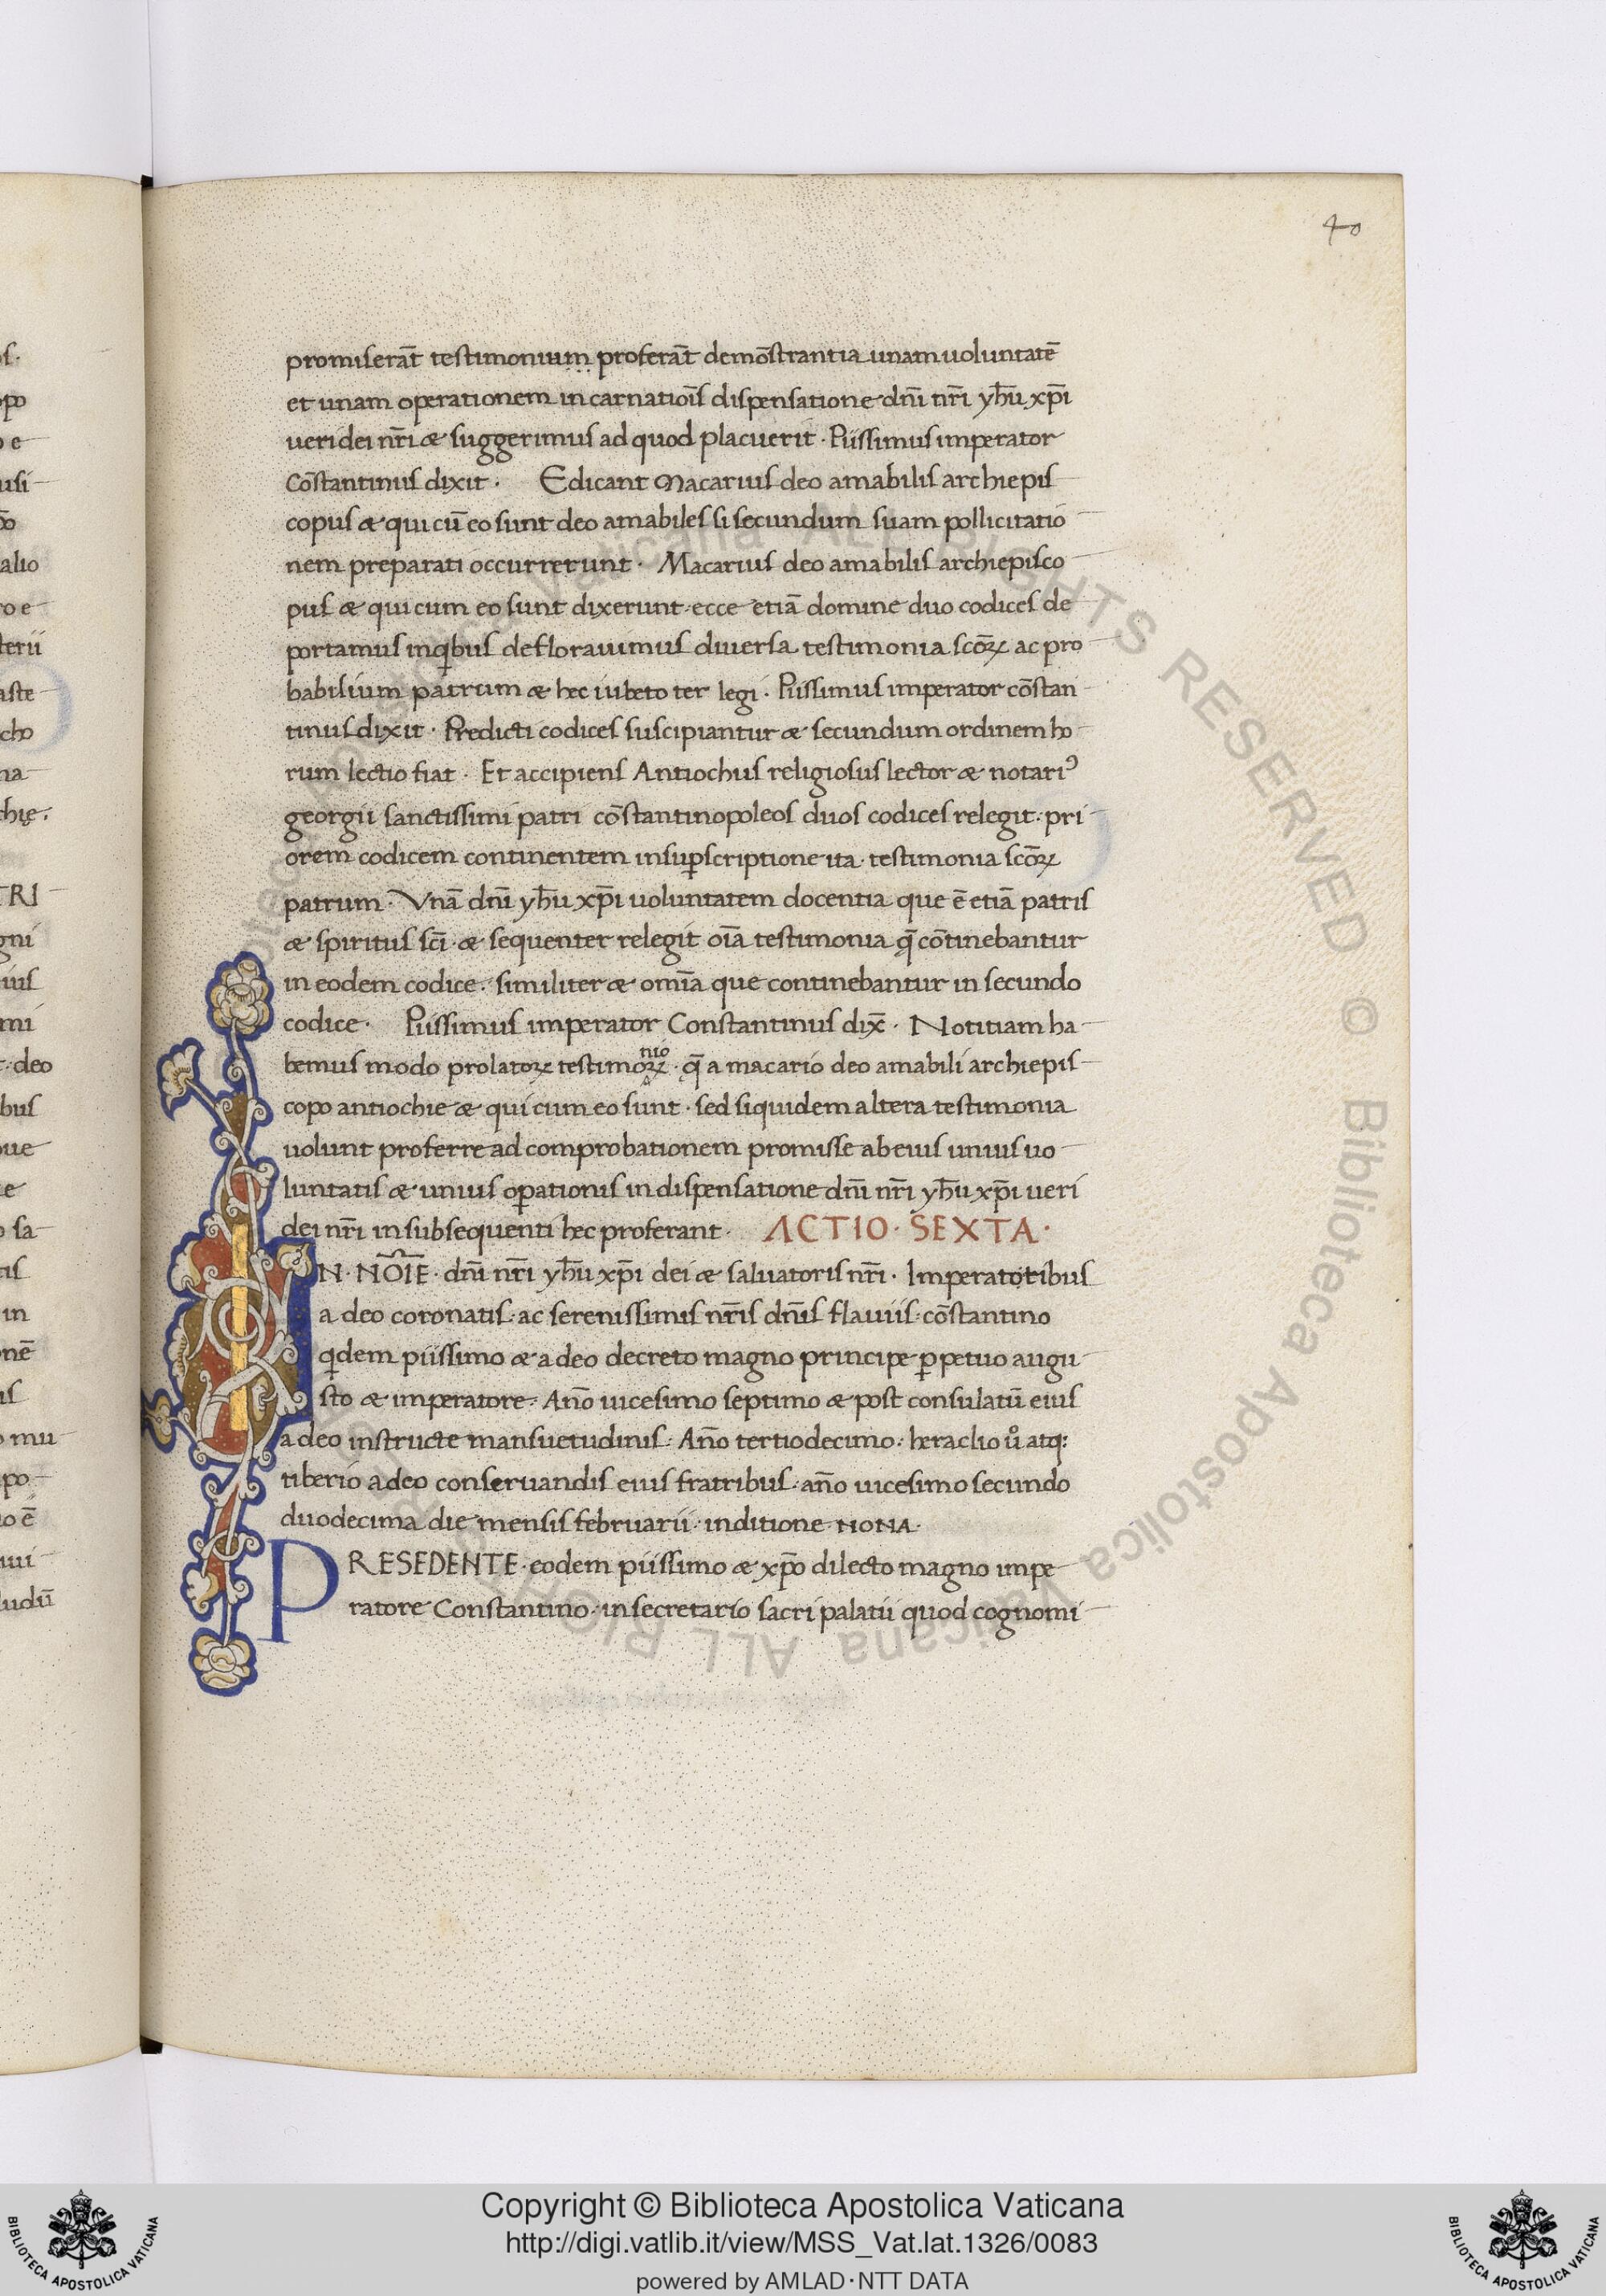 40
promiserāt testimonium proferāt demōstrantia unam uoluntatē
et unam operationem in carnatiōis dispensatione dn̄i nr̄i yhū xp̄i
ueri dei nr̄i & suggerimus ad quod placuerit · Piissimus imperator
Cōstantinus dixit · Edicant Macarius deo amabilis archiepis
copus & qui cū eo sunt deo amabiles si secundum suam pollicitatio
nem preparati occurrerunt · Macarius deo amabilis archiepisco
pus & qui cum eo sunt dixerunt · ecce etiā domine duo codices de
portamus in qibus deflorauimus diuersa testimonia scōꝝ ac pro
babilium patrum & hec iubeto ter legi · Piissimus imperator cōstan
tinus dixit · Predicti codices suscipiantur & secundum ordinem ho
rum lectio fiat · Et accipiens Antiochus religiosus lector & notariꝰ
georgii sanctissimi patri cōstantinopoleos duos codices relegit · pri
orem codicem continentem in suꝑscriptione ita · testimonia scōꝝ
patrum · Vnā dn̄i yhū xp̄i uoluntatem docentia que ē etiā patris
& spiritus sc̄i · & sequenter relegit oīa testimonia q̄ cōtinebantur
in eodem codice · similiter & omīa que continebantur in secundo
codice · Piissimus imperator Constantinus dix̄ · Notitiam ha
bemus modo prolatoꝝ testimonioꝝ · q̄ a macario deo amabili archiepis
copo antiochie & qui cum eo sunt · sed siquidem altera testimonia
uolunt proferre ad comprobationem promisse ab eius unius uo
luntatis & unius oꝑationis in dispensatione dn̄i nr̄i yhū xp̄i ueri
dei nr̄i in subsequenti hec proferant · ACTIO · SEXTA ·
IN · NOĪE · dn̄i nr̄i yhū xp̄i dei & saluatoris nr̄i · Imperatoribus
a deo coronatis · ac serenissimis nr̄is dn̄is flauiis · cōstantino
qdem piissimo & a deo decreto magno principe ꝑpetuo augu
sto & imperatore · An̄o uicesimo septimo & post consulatū eius
a deo instructe mansuetudinis · An̄o tertiodecimo · heraclio uͦ atq:
tiberio a deo conseruandis eius fratribus · an̄o uicesimo secundo
duodecima die mensis februarii · inditione NONA ·
PRESEDENTE · eodem piissimo & xp̄o dilecto magno impe
ratore Constantino · in secretario sacri palatii quod cognomi
Copyright © Biblioteca Apostolica Vaticana
http://digi.vatlib.it/view/MSS_Vat.lat.1326/0083
powered by AMLAD·NTT DATA